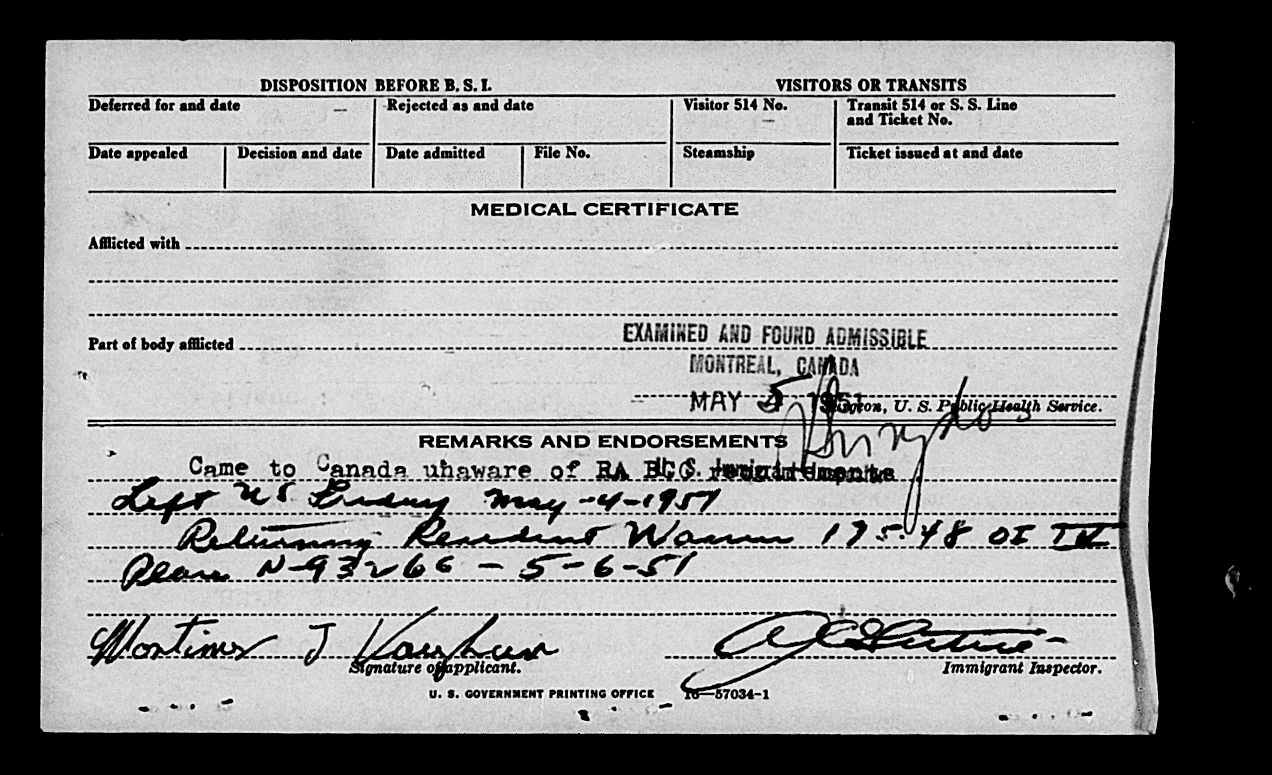 DISPOSITION BEFORE B. S. I. VISITORS OR TRANSITS
Deferred for and date Rejected as and date Visitor 514 No. Transit 514 or S. S. Line and Ticket No.
Date appealed Decision and date Date admitted File No. Steamship Ticket issued at and date
MEDICAL CERTIFICATE
Afflicted with
Part of body afflicted
EXAMINED AND FOUND ADMISSIBLE
MONTREAL, CANADA
MAY 5 1951
Surgeon, U. S. Public Health Service.
REMARKS AND ENDORSEMENTS
Came to Canada uhaware of RA BCC requirements
U. S.
Left US Friday May-4-1951
Returning Resident Waiver 175.48 OI IV
Plane N-93266 - 5-6-51
Mortimer J Vaughan
Signature of applicant. Immigrant Inspector.
U. S. GOVERNMENT PRINTING OFFICE 16—57034-1